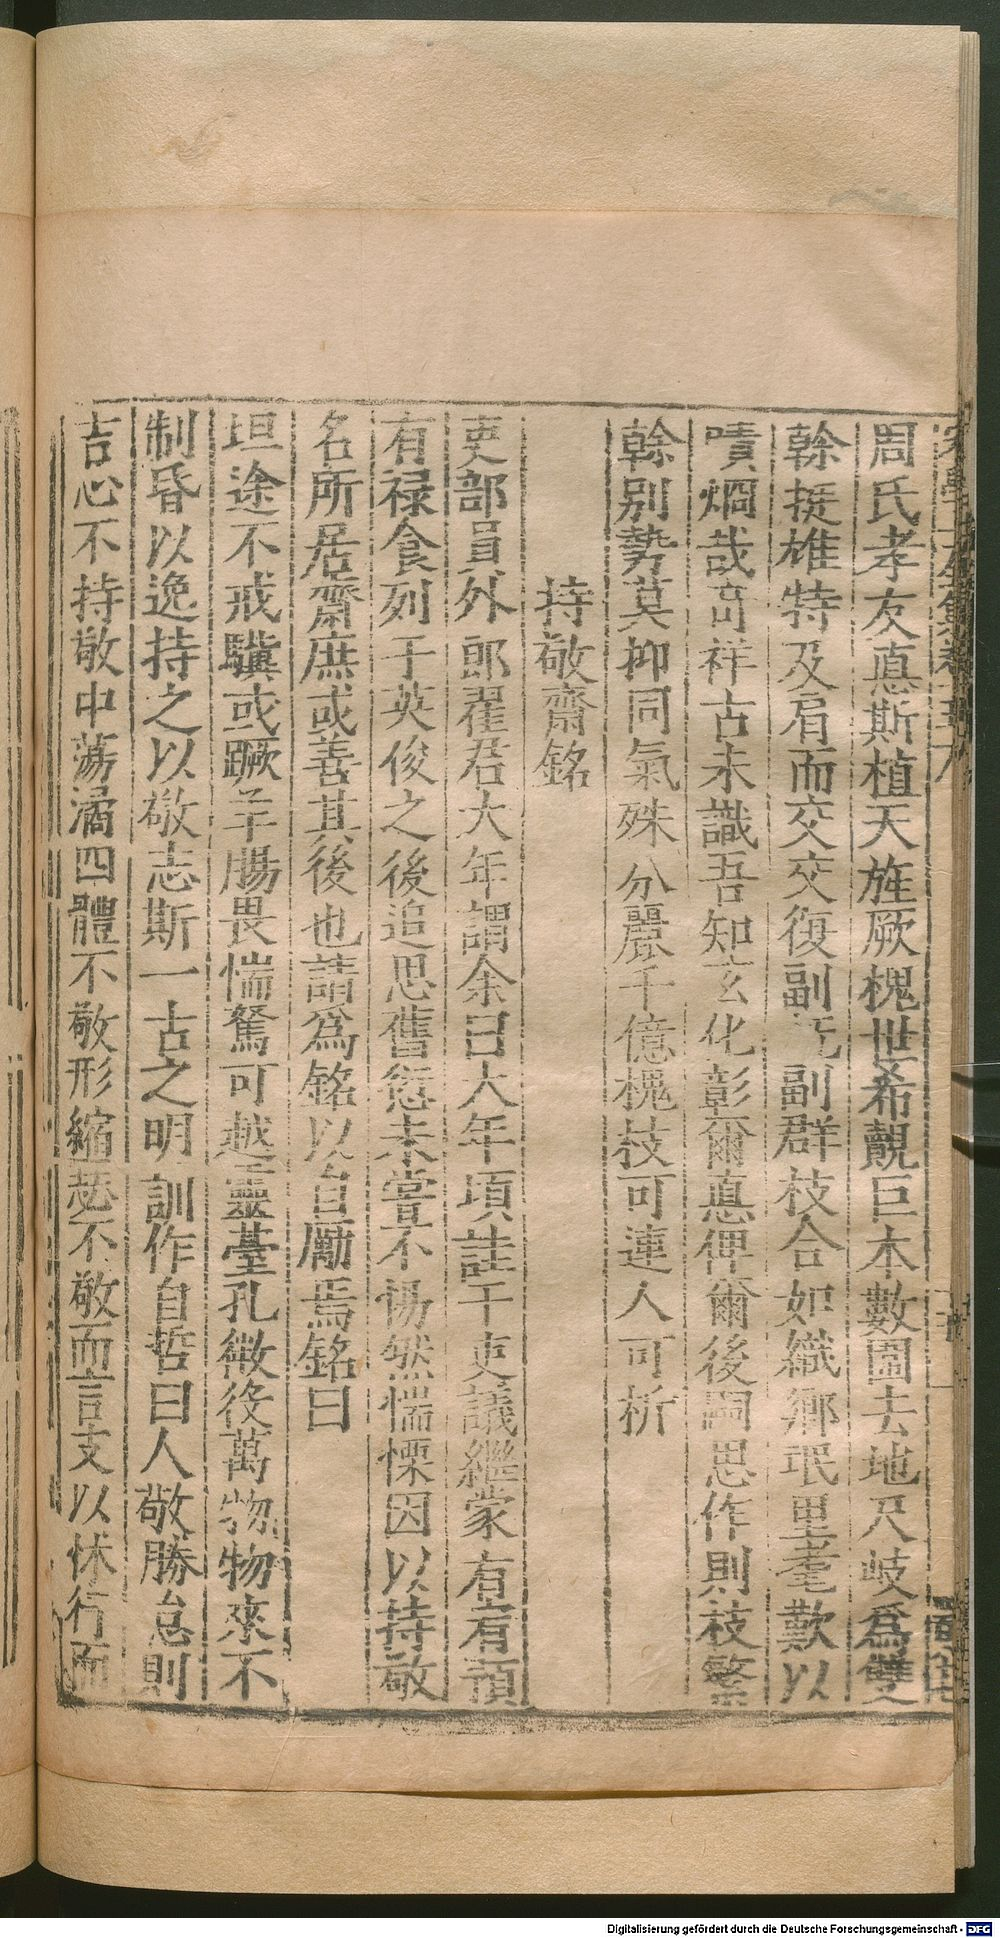 周氏孝友悳斯植天旌厥槐世希覿巨木數圍去地尺岐爲雙
榦挺雄特及肩而交交復副旣副群枝合如織鄉氓里耄歎以
嘖烱哉奇祥古未識吾知玄化彰爾悳俾爾後嗣思作則枝繁
榦别勢莫抑同氣殊分麗千億槐枝可連人可析
持敬齋銘
吏部員外郎翟君大年謂余曰大年頃詿于吏議繼蒙宥宥預
有禄食列于英俊之後追思舊愆未甞不惕然惴慄因以持敬
名所居齋庶或善其後也請爲銘以自厲焉銘曰
坦途不戒驥或蹶羊腸畏惴駑可越靈臺孔微役萬物物來不
制昏以逸持之以敬志斯一古之明訓作自哲曰人敬勝怠則
吉心不持敬中蕩潏四體不敬形縮瑟不敬而言支以怵行而
Digitalisierung gefördert durch die Deutsche Forschungsgemeinschaft - DFG